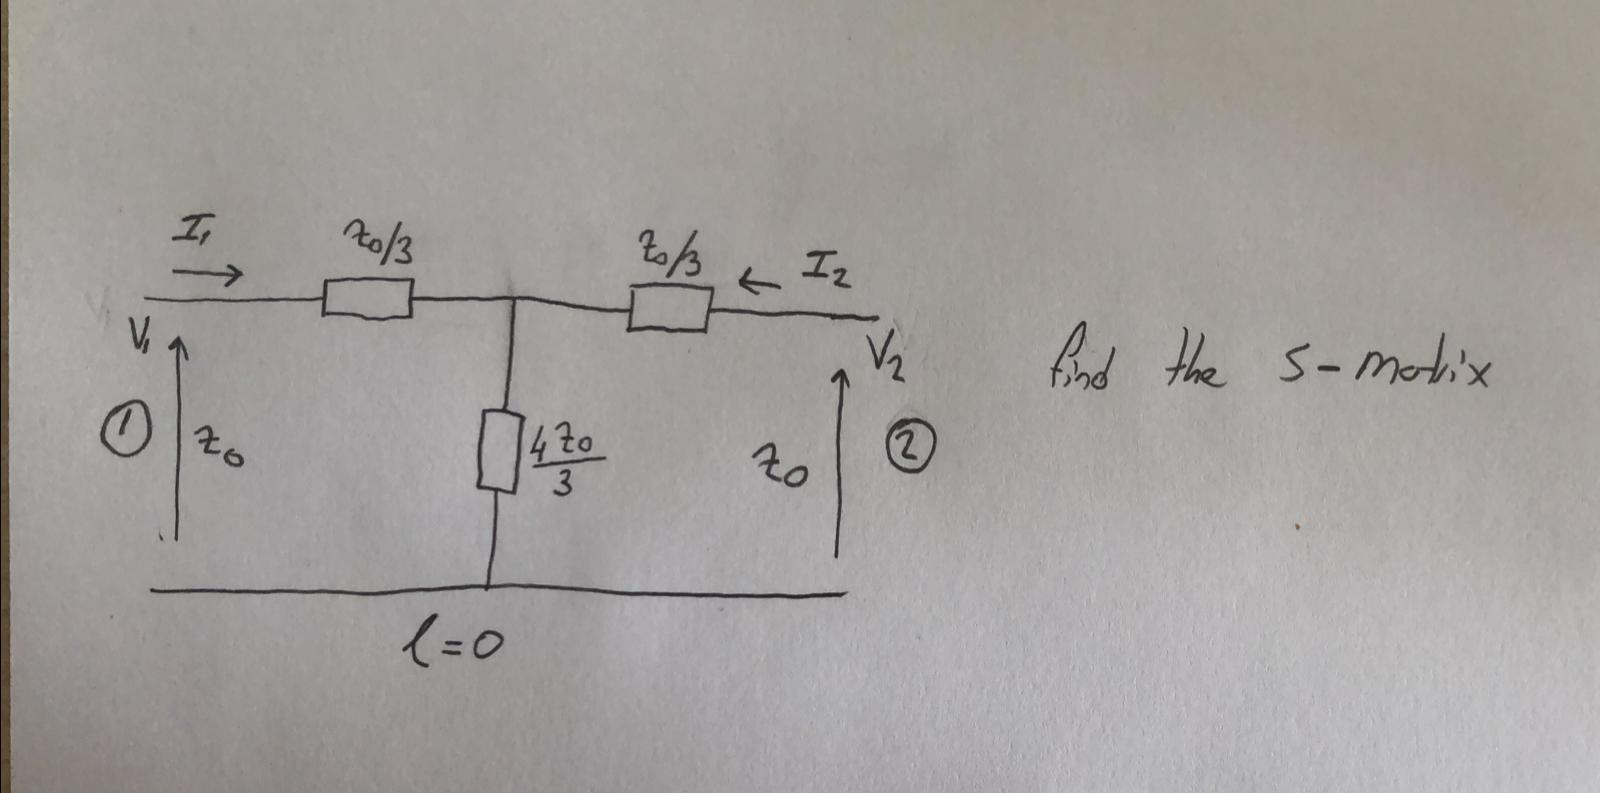 I₁
z₀/3
z₀/3
I₂
V₁
V₂
find the S-matrix
①
z₀
4z₀
3
z₀
②
l=0